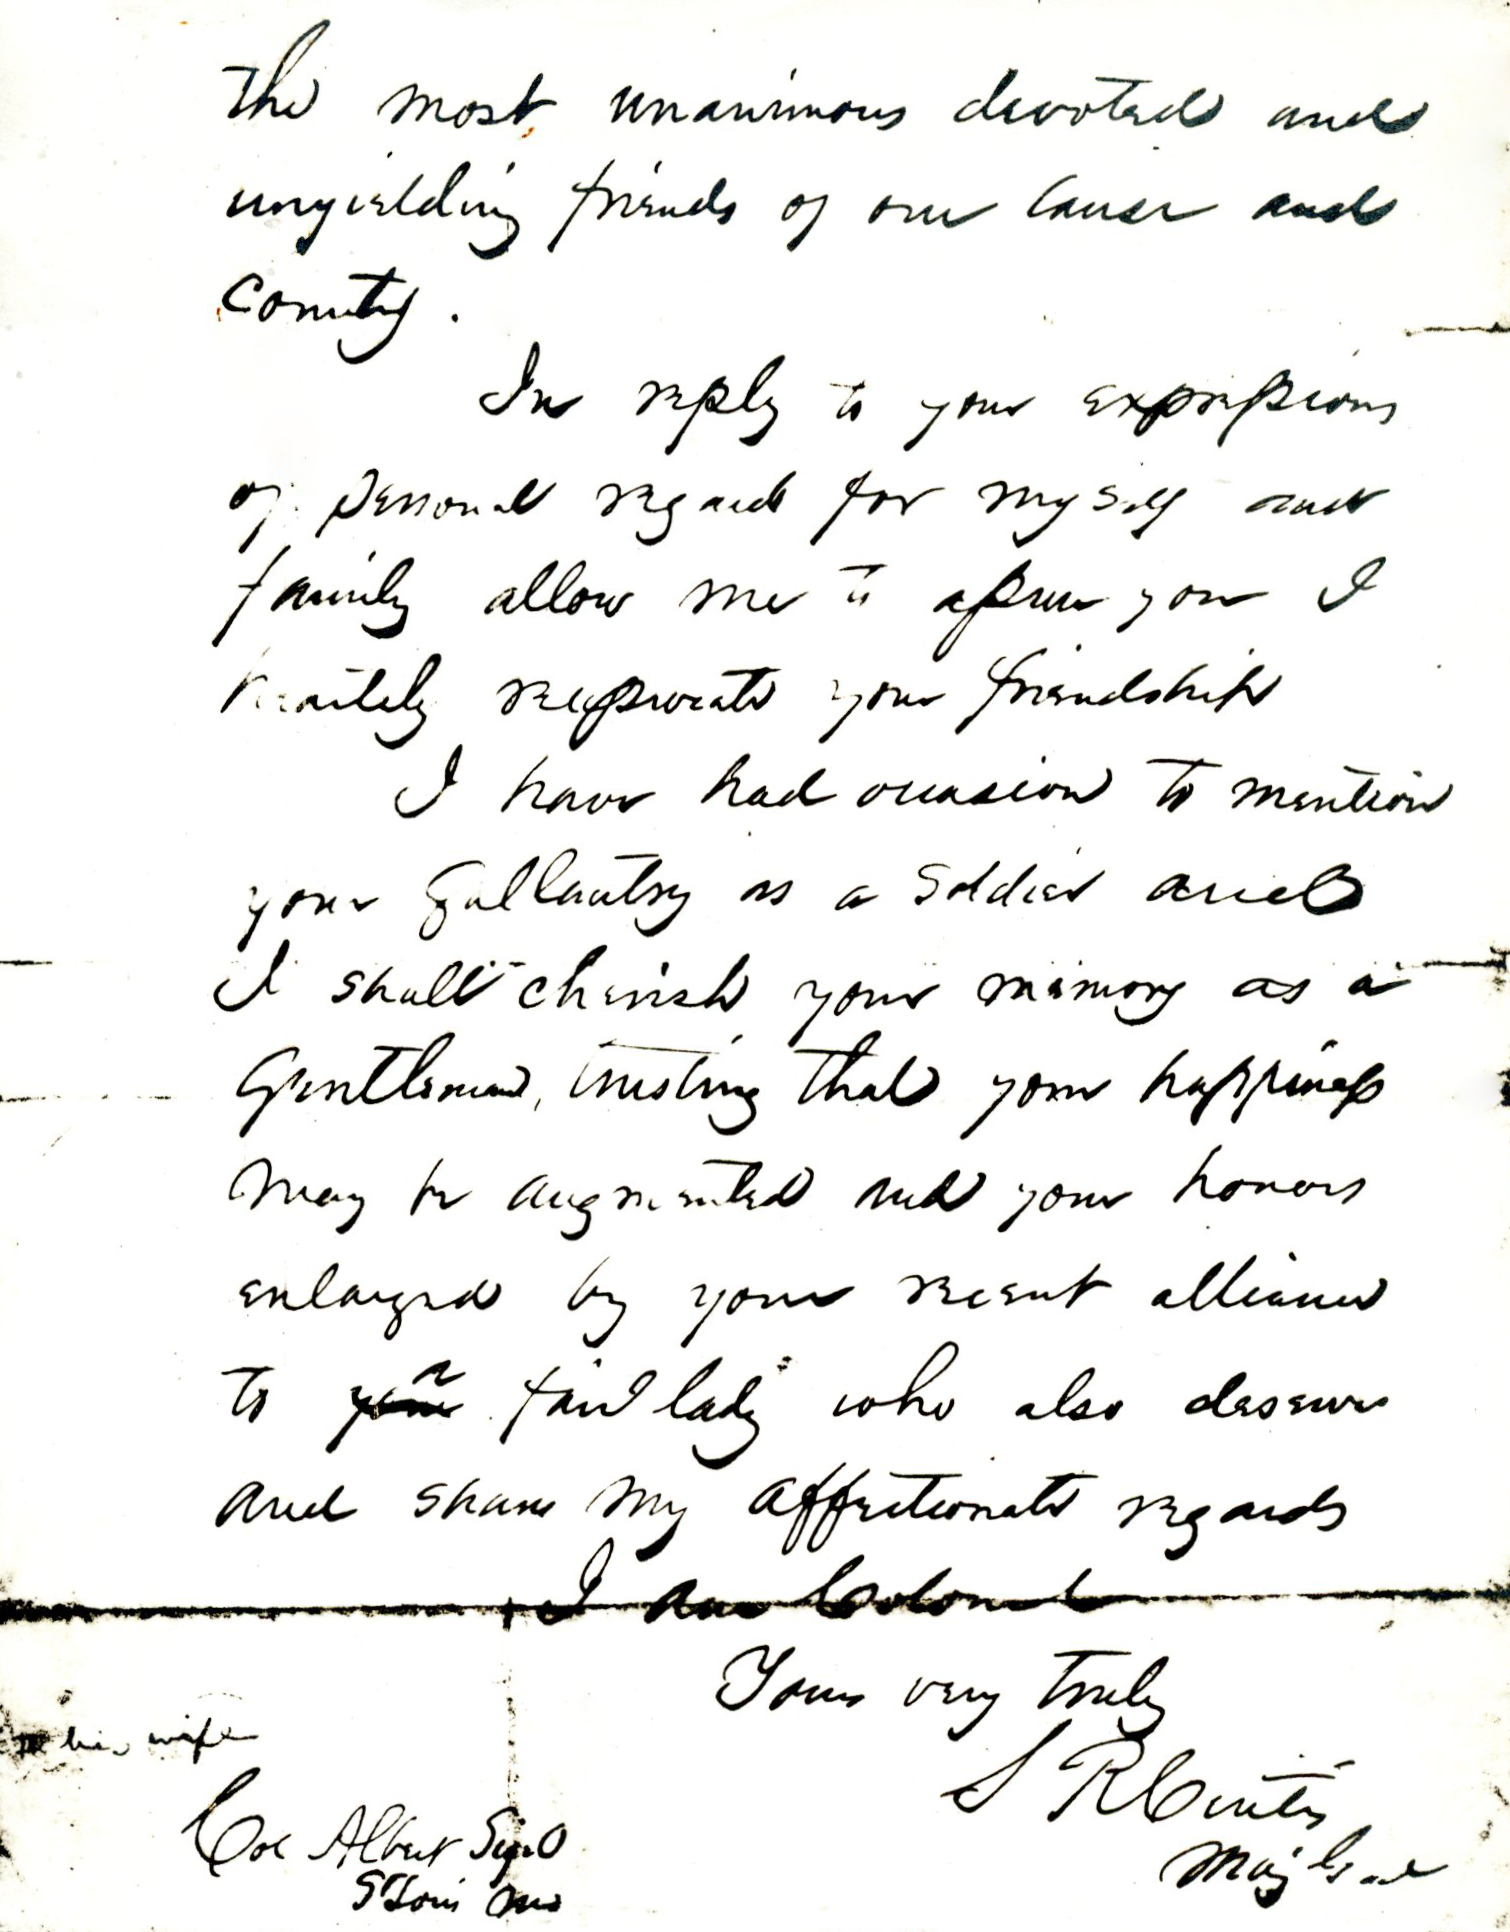 the most unanimous devoted and
unyielding friends of our Cause and
County.
In reply to your expressions
of personal regard for myself and
family allow me to assure you I
heartely reciprocate your friendship
I have had occasion to mention
your Gallantry as a Soldier and
I shall cherish your memory as a
Gentleman, trusting that your happiness
may be augmented and your honors
enlarged by your recent alliance
to your a fair lady who also deserves
and shares my affectionate regards
I am Colonel
Yours very truly
S R Curtis
Maj Genl
his wife
Col Albert Sigel
St Louis Mo